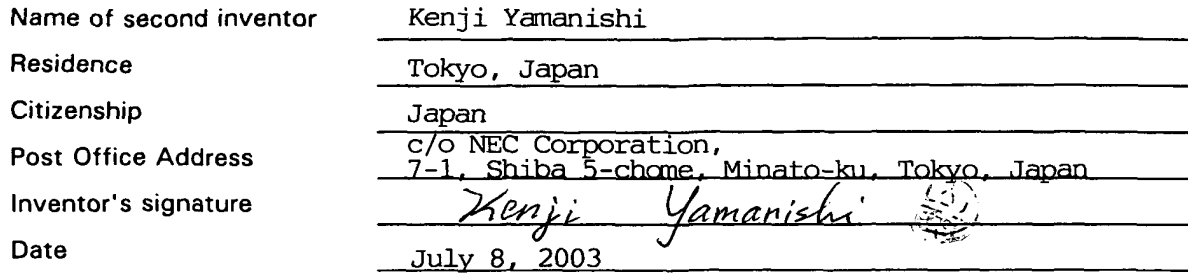 Name of second inventor Kenji Yamanishi
Residence Tokyo, Japan
Citizenship Japan
Post Office Address c/o NEC Corporation,
7-1, Shiba 5-chome, Minato-ku, Tokyo, Japan
Inventor's signature Kenji Yamanishi
Date July 8, 2003